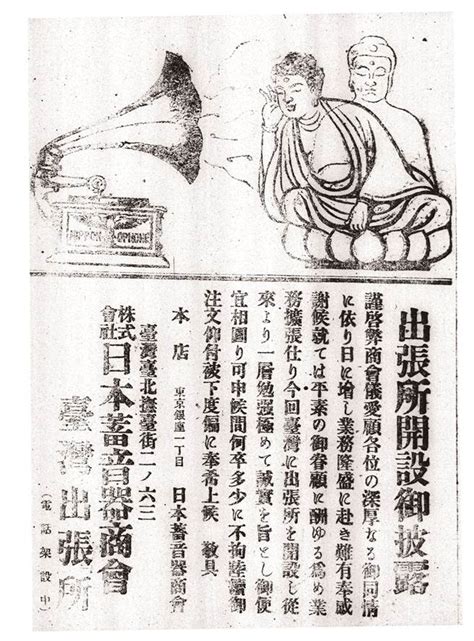 NIPPON OPHONE
出張所開設御披露
謹啓弊商會儀愛顧各位の深厚なる御同情
に依り日に增し業務隆盛に赴き難有奉感
謝候就ては平素の御眷顧に酬ゆる爲め業
務擴張仕り今回臺灣に出張所を開設し從
來より一層勉强極めて誠實を旨とし御便
宜相圖り可申候間何卒多少に不拘陸續御
注文仰付被下度偏に奉希上候 敬具
本店 東京銀座一丁目 日本蓄音器商會
臺灣臺北撫臺街二ノ六三
株式會社 日本蓄音器商會
臺灣出張所
(電話架設中)